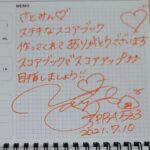 MEMO
さとみん♡
ステキなスコアブック
作ってくれてありがとうございます
スコアブックでスコアアップ
目指しましょう
2021.7.10